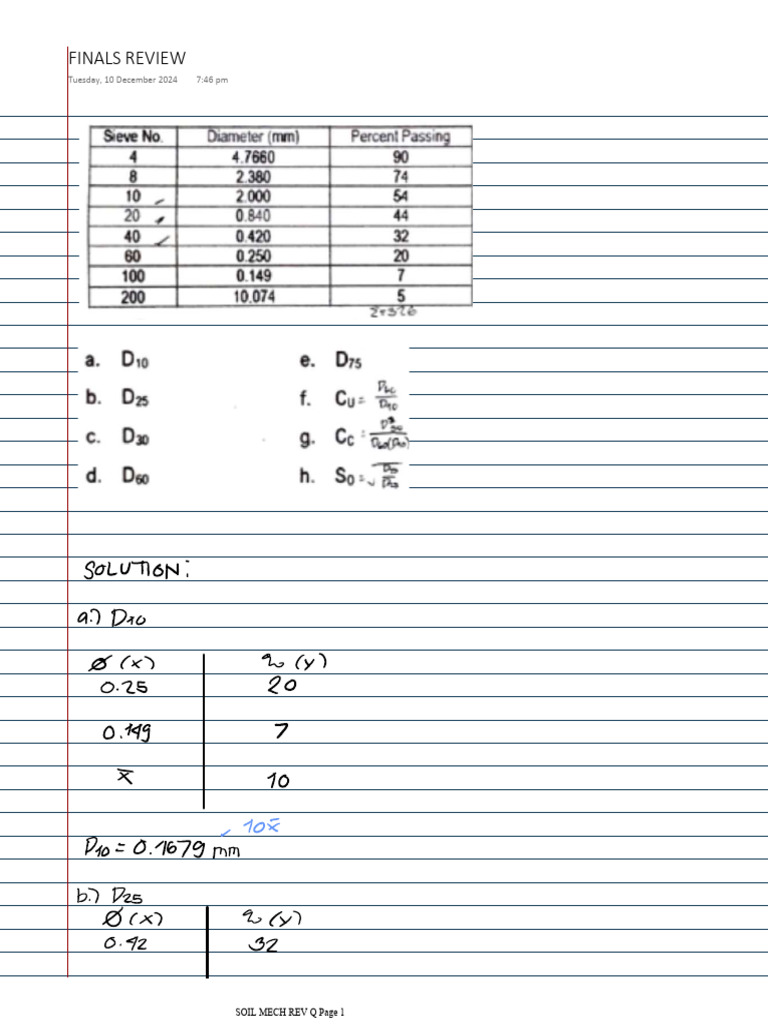 FINALS REVIEW
Tuesday, 10 December 2024 7:46 pm
Sieve No. Diameter (mm) Percent Passing
4 4.7660 90
8 2.380 74
10 2.000 54
20 0.840 44
40 0.420 32
60 0.250 20
100 0.149 7
200 10.074 5
a. D10 e. D75
b. D25 f. CU = D60/D10
c. D30 g. CC =
d. D60 h. S0 =
SOLUTION:
a.) D10
Ø (x) % (y)
0.25 20
0.149 7
x̄ 10
10x̄
D10 = 0.1679 mm
b.) D25
Ø (x) % (y)
0.42 32
SOIL MECH REV Q Page 1